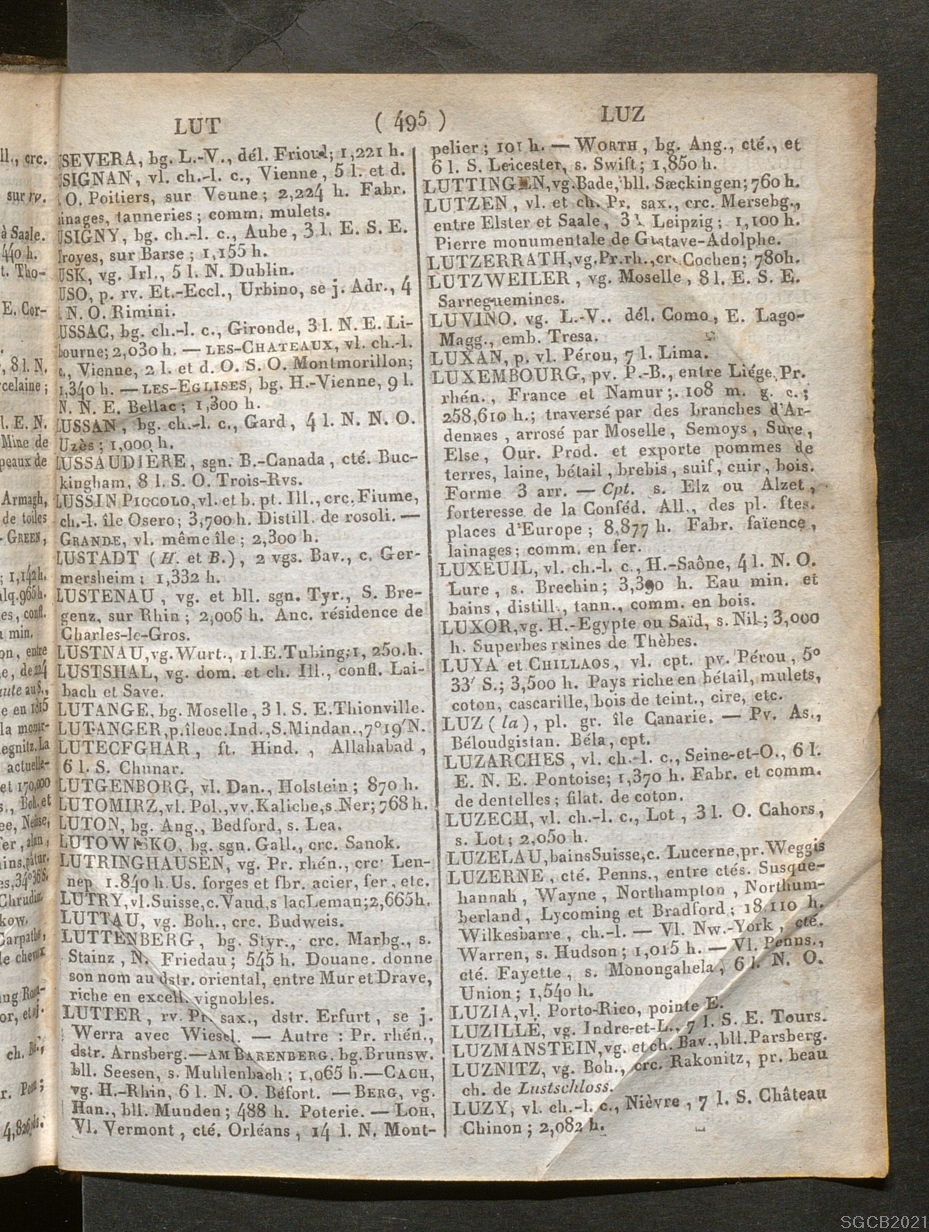 LUT
( 495 )
LUZ
SEVERA, bg. L.-V., dél. Frioul; 1,221 h.
SIGNAN, vl. ch.-l. c., Vienne, 5 l. et d.
O. Poitiers, sur Veune; 2,224 h. Fabr.
lainages, tanneries; comm. mulets.
USIGNY, bg. ch.-l. c., Aube, 3 l. E. S. E.
Troyes, sur Barse; 1,155 h.
USK, vg. Irl., 5 l. N. Dublin.
USO, p. rv. Et.-Eccl., Urbino, se j. Adr., 4
l. N. O. Rimini.
USSAC, bg. ch.-l. c., Gironde, 3 l. N. E. Li-
bourne; 2,030 h. — LES-CHATEAUX, vl. ch.-l.
c., Vienne, 2 l. et d. O. S. O. Montmorillon;
1,340 h. — LES-EGLISES, bg. H.-Vienne, 9 l.
N. N. E. Bellac; 1,300 h.
LUSSAN, bg. ch.-l. c., Gard, 4 l. N. N. O.
Uzès; 1,000 h.
LUSSAUDIERE, sgn. B.-Canada, cté. Buc-
kingham, 8 l. S. O. Trois-Rvs.
LUSSIN PICCOLO, vl. et b. pt. Ill., crc. Fiume,
ch.-l. île Osero; 3,700 h. Distill. de rosoli. —
GRANDE, vl. même île; 2,300 h.
LUSTADT (H. et B.), 2 vgs. Bav., c. Ger-
mersheim; 1,332 h.
LUSTENAU, vg. et bll. sgn. Tyr., S. Bre-
genz, sur Rhin; 2,006 h. Anc. résidence de
Charles-le-Gros.
LUSTNAU, vg. Wurt., 1 l. E. Tubing; 1,250 h.
LUSTSHAL, vg. dom. et ch. Ill., confl. Lai-
bach et Save.
LUTANGE, bg. Moselle, 3 l. S. E. Thionville.
LUTANGER, p. île oc. Ind., S. Mindan., 7° 19′ N.
LUTECFGHAR, ft. Hind., Allahabad,
6 l. S. Chunar.
LUTGENBORG, vl. Dan., Holstein; 870 h.
LUTOMIRZ, vl. Pol., vv. Kaliche, s. Ner; 768 h.
LUTON, bg. Ang., Bedford, s. Lea.
LUTOWISKO, bg. sgn. Gall., crc. Sanok.
LUTRINGHAUSEN, vg. Pr. rhén., crc. Len-
nep 1,840 h. Us. forges et fbr. acier, fer, etc.
LUTRY, vl. Suisse, c. Vaud, s lac Leman; 2,665 h.
LUTTAU, vg. Boh., crc. Budweis.
LUTTENBERG, bg. Styr., crc. Marbg., s.
Stainz, N. Friedau; 545 h. Douane. donne
son nom au dstr. oriental, entre Mur et Drave,
riche en excell. vignobles.
LUTTER, rv. Pr. sax., dstr. Erfurt, se j.
Werra avec Wiesel. — Autre: Pr. rhén.,
dstr. Arnsberg. — AM BARENBERG, bg. Brunsw.
bll. Seesen, s. Muhlenbach; 1,065 h. — CACH,
vg. H.-Rhin, 6 l. N. O. Béfort. — BERG, vg.
Han., bll. Munden; 488 h. Poterie. — LOH,
Vl. Vermont, cté. Orléans, 14 l. N. Mont-
pelier; 101 h. — WORTH, bg. Ang., cté., et
6 l. S. Leicester, s. Swift; 1,850 h.
LUTTINGEN, vg. Bade, bll. Sæckingen; 760 h.
LUTZEN, vl. et ch. Pr. sax., crc. Mersebg.,
entre Elster et Saale, 3 l. Leipzig; 1,100 h.
Pierre monumentale de Gustave-Adolphe.
LUTZERRATH, vg. Pr. rh., crc. Cochen; 780 h.
LUTZWEILER, vg. Moselle, 8 l. E. S. E.
Sarreguemines.
LUVINO, vg. L.-V., dél. Como, E. Lago-
Magg., emb. Tresa.
LUXAN, p. vl. Pérou, 7 l. Lima.
LUXEMBOURG, pv. P.-B., entre Liége, Pr.
rhén., France et Namur; 108 m. g. c.;
258,610 h.; traversé par des branches d'Ar-
dennes, arrosé par Moselle, Semoys, Sure,
Else, Our. Prod. et exporte pommes de
terres, laine, bétail, brebis, suif, cuir, bois.
Forme 3 arr. — Cpt. s. Elz ou Alzet,
forteresse de la Conféd. All., des pl. ftes.
places d'Europe; 8,877 h. Fabr. faïence,
lainages; comm. en fer.
LUXEUIL, vl. ch.-l. c., H.-Saône, 4 l. N. O.
Lure, s. Brechin; 3,390 h. Eau min. et
bains, distill., tann., comm. en bois.
LUXOR, vg. H.-Egypte ou Saïd, s. Nil; 3,000
h. Superbes ruines de Thèbes.
LUYA et CHILLAOS, vl. cpt. pv. Pérou, 5°
33′ S.; 3,500 h. Pays riche en bétail, mulets,
coton, cascarille, bois de teint., cire, etc.
LUZ (la), pl. gr. île Canarie. — Pv. As.,
Béloudgistan. Béla, cpt.
LUZARCHES, vl. ch.-l. c., Seine-et-O., 6 l.
E. N. E. Pontoise; 1,370 h. Fabr. et comm.
de dentelles; filat. de coton.
LUZECH, vl. ch.-l. c., Lot, 3 l. O. Cahors,
s. Lot; 2,050 h.
LUZELAU, bains Suisse, c. Lucerne, pr. Weggis
LUZERNE, cté. Penns., entre ctés. Susque-
hannah, Wayne, Northampton, Northum-
berland, Lycoming et Bradford; 18,110 h.
Wilkesbarre, ch.-l. — Vl. Nw.-York, cté.
Warren, s. Hudson; 1,015 h. — Vl. Penns.,
cté. Fayette, s. Monongahela, 6 l. N. O.
Union; 1,540 h.
LUZIA, vl. Porto-Rico, pointe E.
LUZILLÉ, vg. Indre-et-L., 7 l. S. E. Tours.
LUZMANSTEIN, vg. et ch. Bav., bll. Parsberg.
LUZNITZ, vg. Boh., crc. Rakonitz, pr. beau
ch. de Lustschloss.
LUZY, vl. ch.-l. c., Nièvre, 7 l. S. Château
Chinon; 2,082 h.
SGCB2021